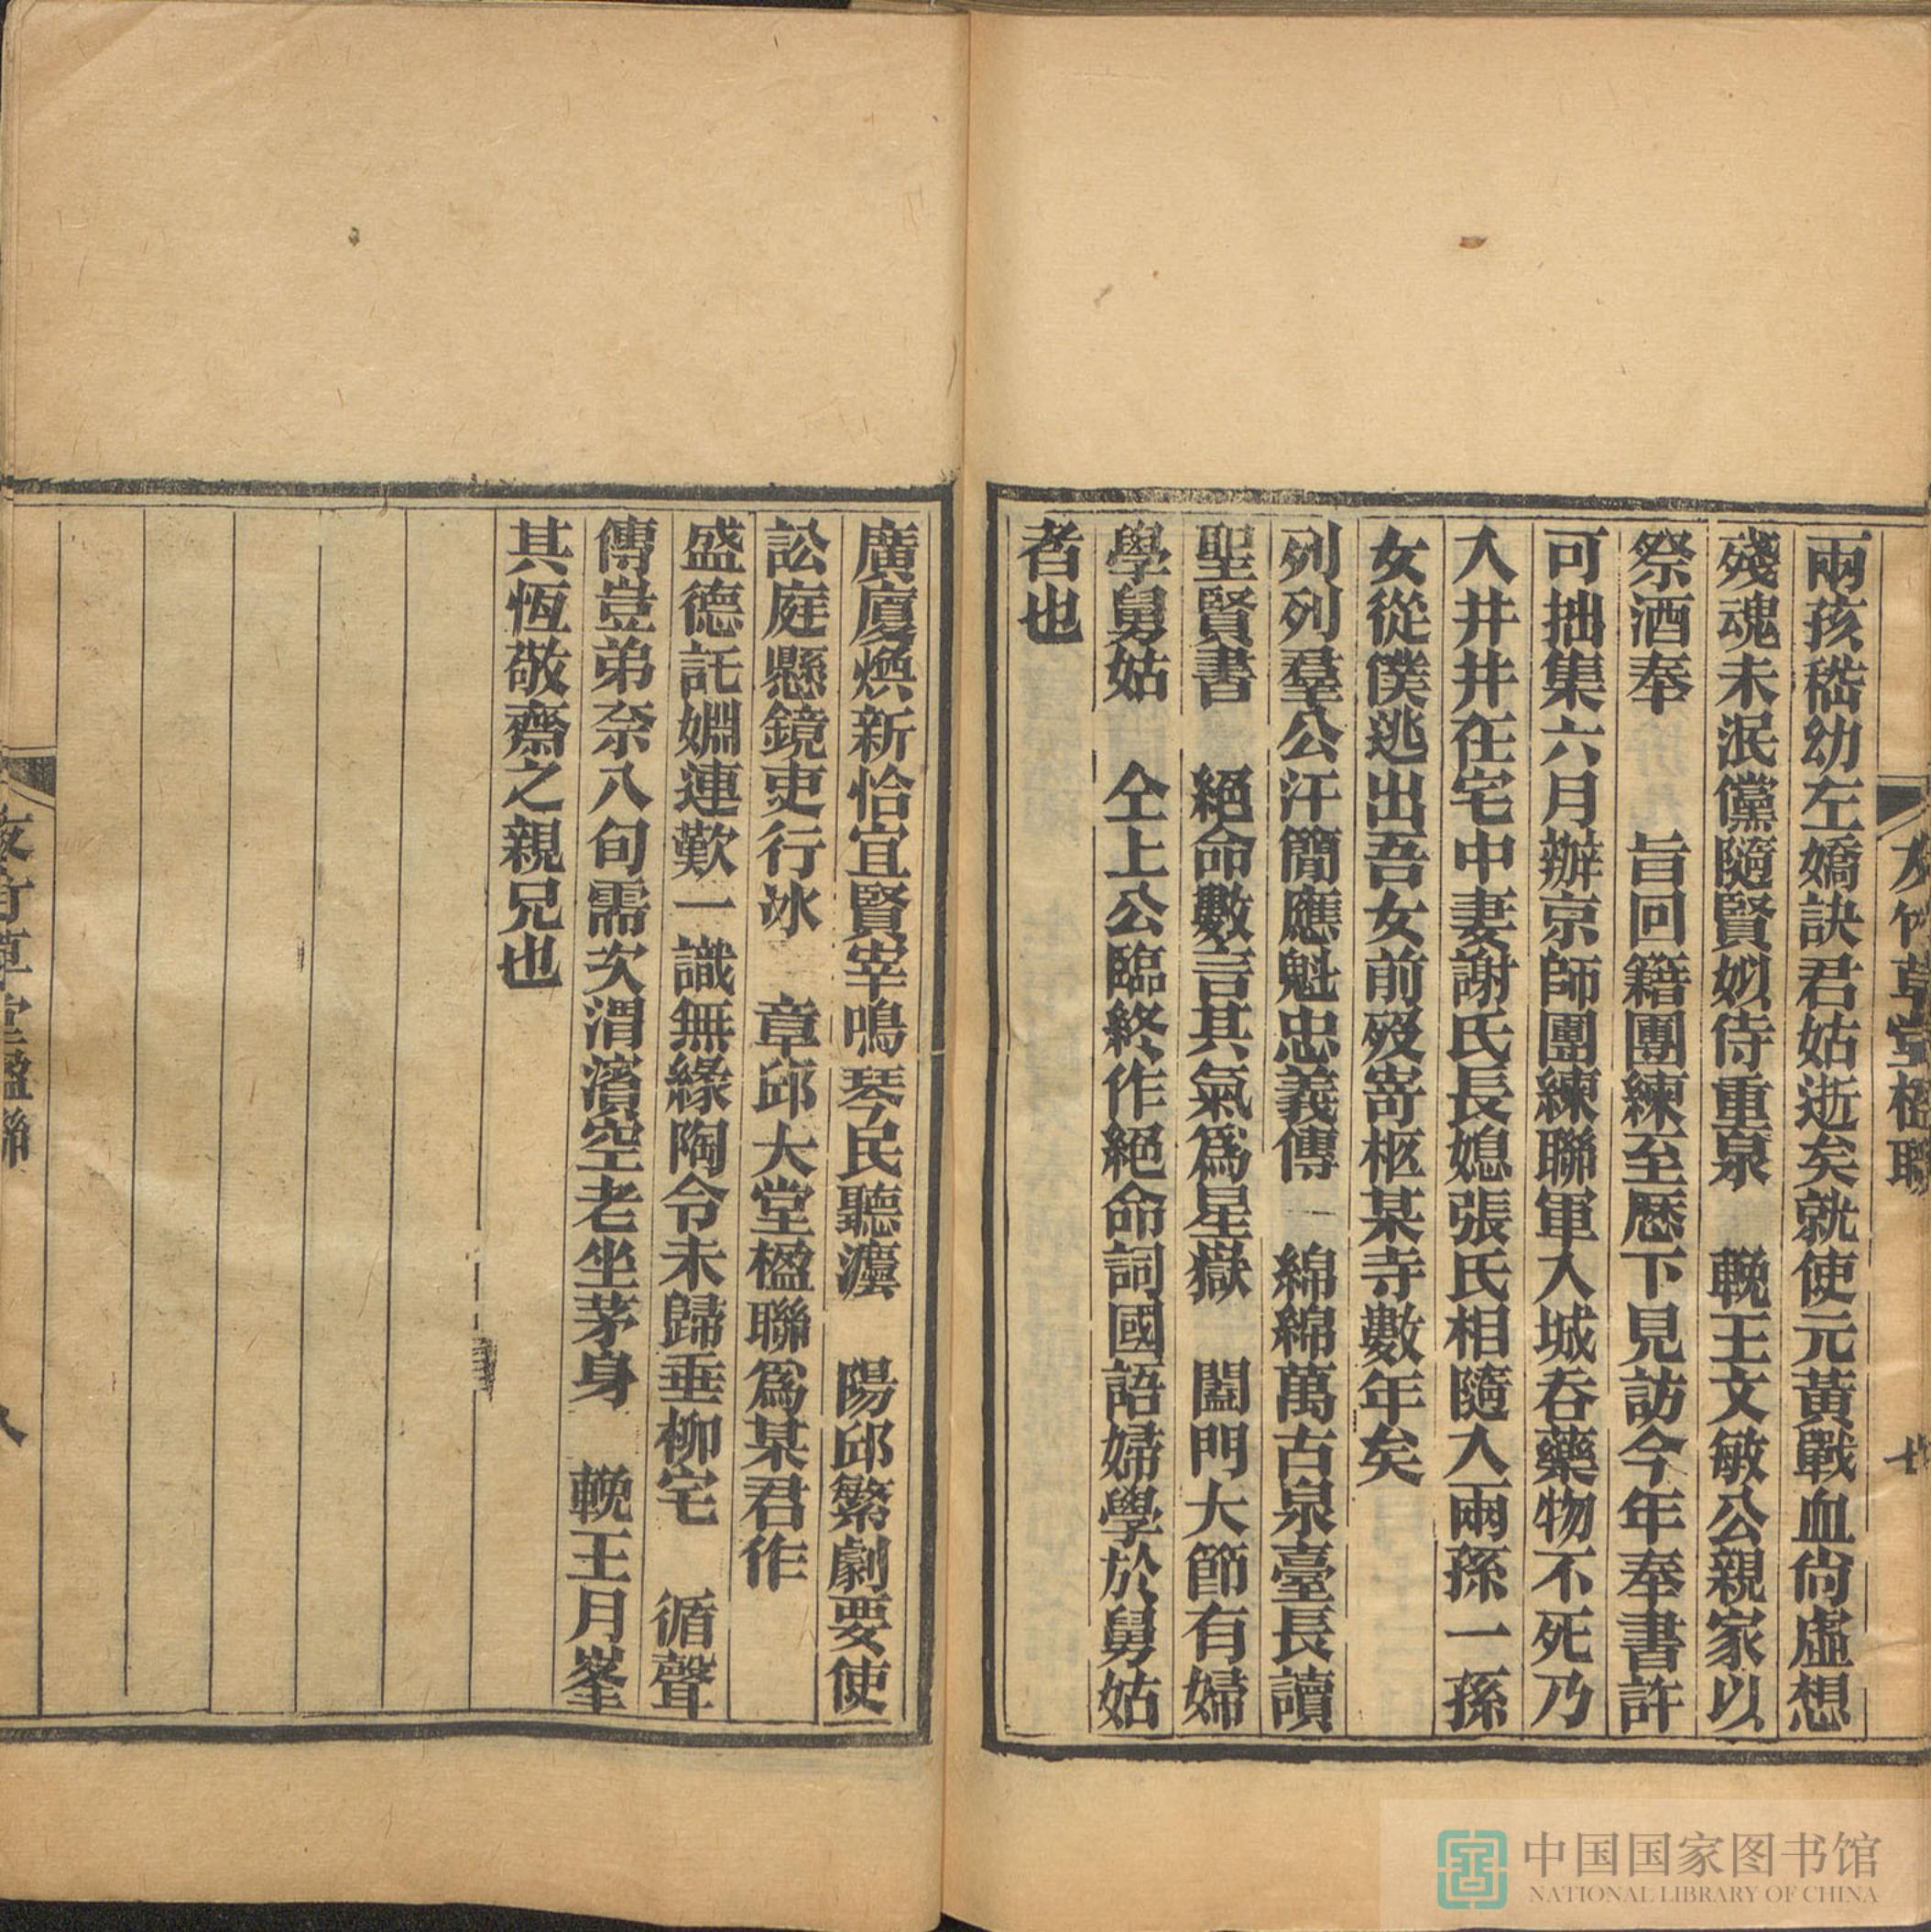 友竹草堂楹聯
七
兩孩嵇幼左嬌訣君姑逝矣就使元黃戰血尙虛想
殘魂未泯儻隨賢姒侍重泉　輓王文敏公親家以
祭酒奉　　旨回籍團練至歷下見訪今年奉書許
可拙集六月辦京師團練聯軍入城吞藥物不死乃
入井井在宅中妻謝氏長媳張氏相隨入兩孫一孫
女從僕逃出吾女前歿寄柩某寺數年矣
列列羣公汗簡應魁忠義傳　綿綿萬古泉臺長讀
聖賢書　絕命數言其氣爲星嶽　闔門大節有婦
學舅姑　仝上公臨終作絕命詞國語婦學於舅姑
者也
廣廈煥新恰宜賢宰鳴琴民聽瀍　陽邱繁劇要使
訟庭懸鏡吏行冰　章邱大堂楹聯爲某君作
盛德託婣連歎一識無緣陶令未歸垂柳宅　循聲
傳豈弟奈八旬需次渭濱空老坐茅身　輓王月峯
其恆敬齋之親兄也
友竹草堂楹聯
八
中国国家图书馆
NATIONAL LIBRARY OF CHINA